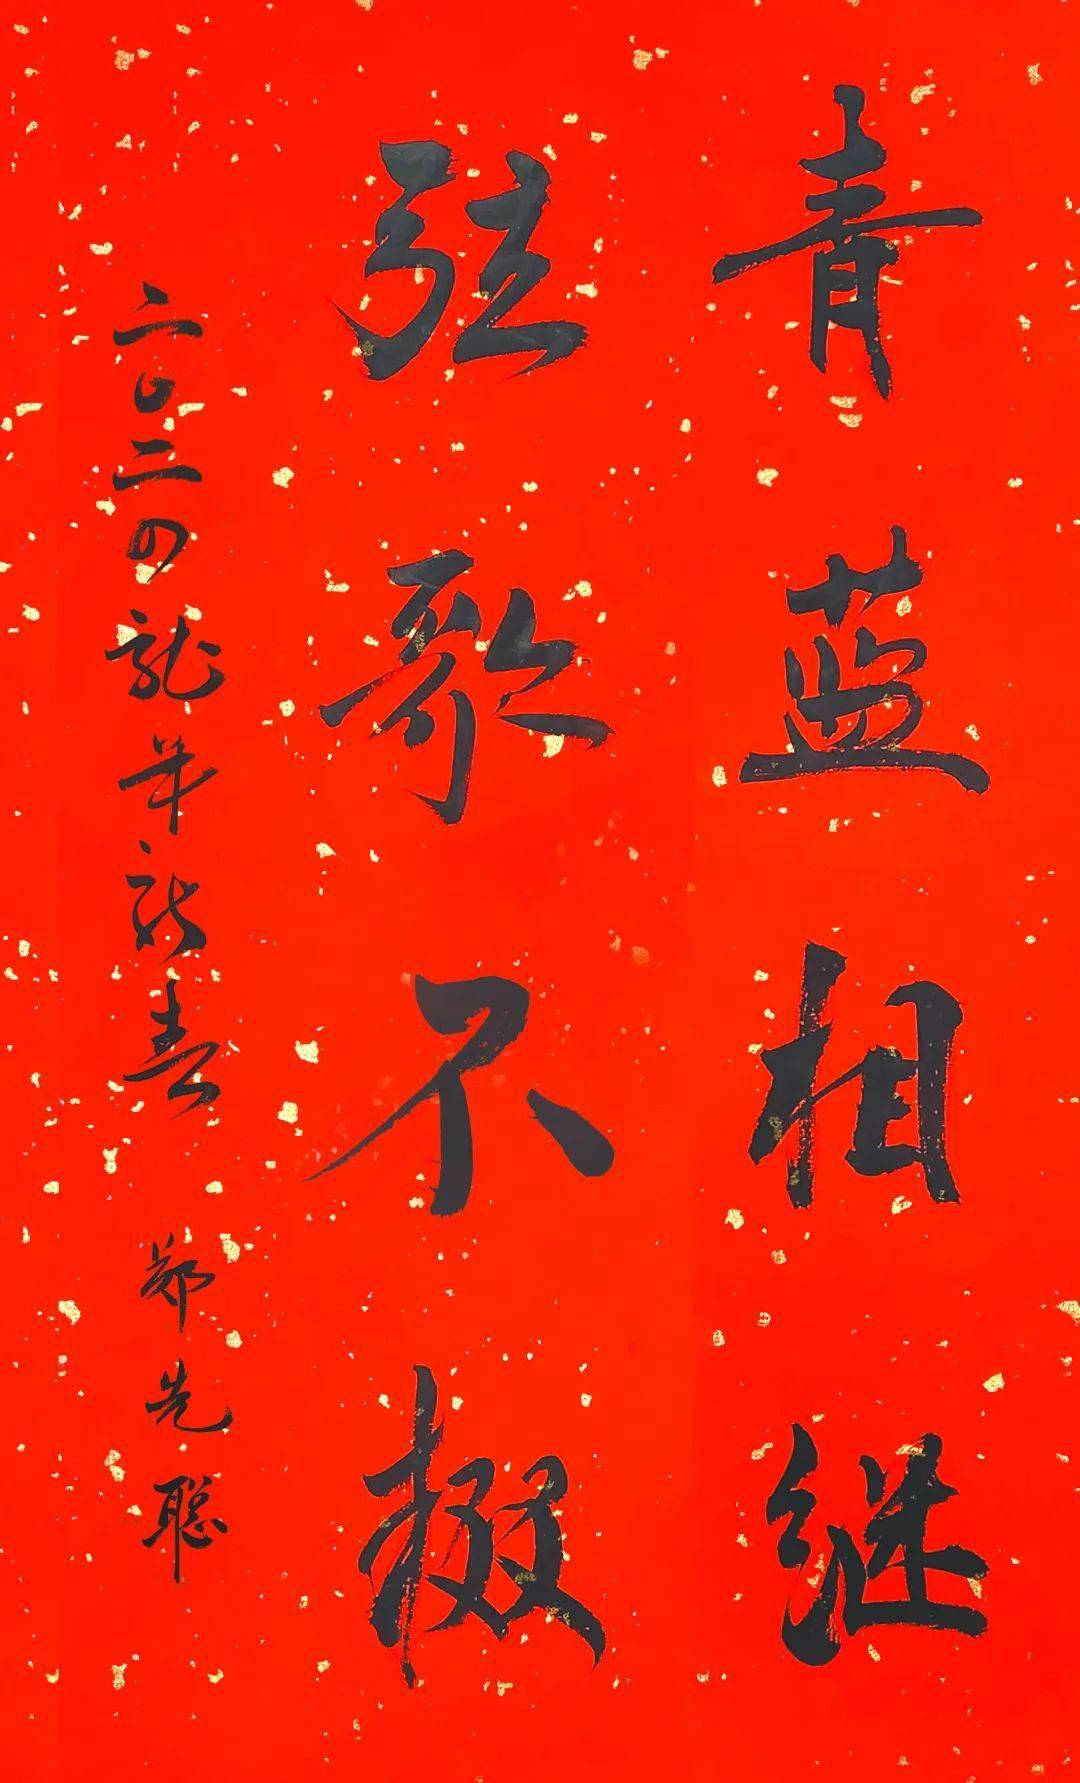 青蓝相继
弦歌不掇
二〇二四龙年新春 郑先聪